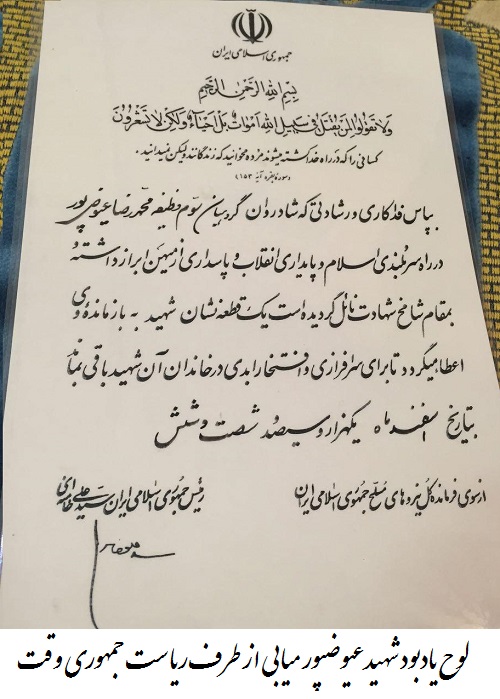 جمهوری اسلامی ایران
بسم الله الرحمن الرحیم
ولا تقولوا لمن یقتل فی سبیل الله اموات بل احیاء ولکن لا تشعرون
کسانی را که در راه خدا کشته میشوند مرده مخوانید که زندگانند ولیکن نمیدانید.
(سوره بقره آیه ۱۵۴)
بپاس فداکاری و رشادتی که شادروان گروهبان سوم وظیفه محمدرضا عیوضی پور
در راه سربلندی اسلام و پایداری انقلاب و پاسداری از میهن ابراز داشته و
بمقام شامخ شهادت نائل گردیده است یک قطعه نشان شهید به بازمانده وی
اعطا میگردد تا برای سرافرازی و افتخار ابدی در خاندان آن شهید باقی بماند
بتاریخ اسفند ماه یکهزار و سیصد و شصت و شش
از سوی فرمانده کل نیروهای مسلح جمهوری اسلامی ایران
رئیس جمهوری اسلامی ایران سید علی خامنه ای
لوح یادبود شهید عیوضپور میابی از طرف ریاست جمهوری وقت